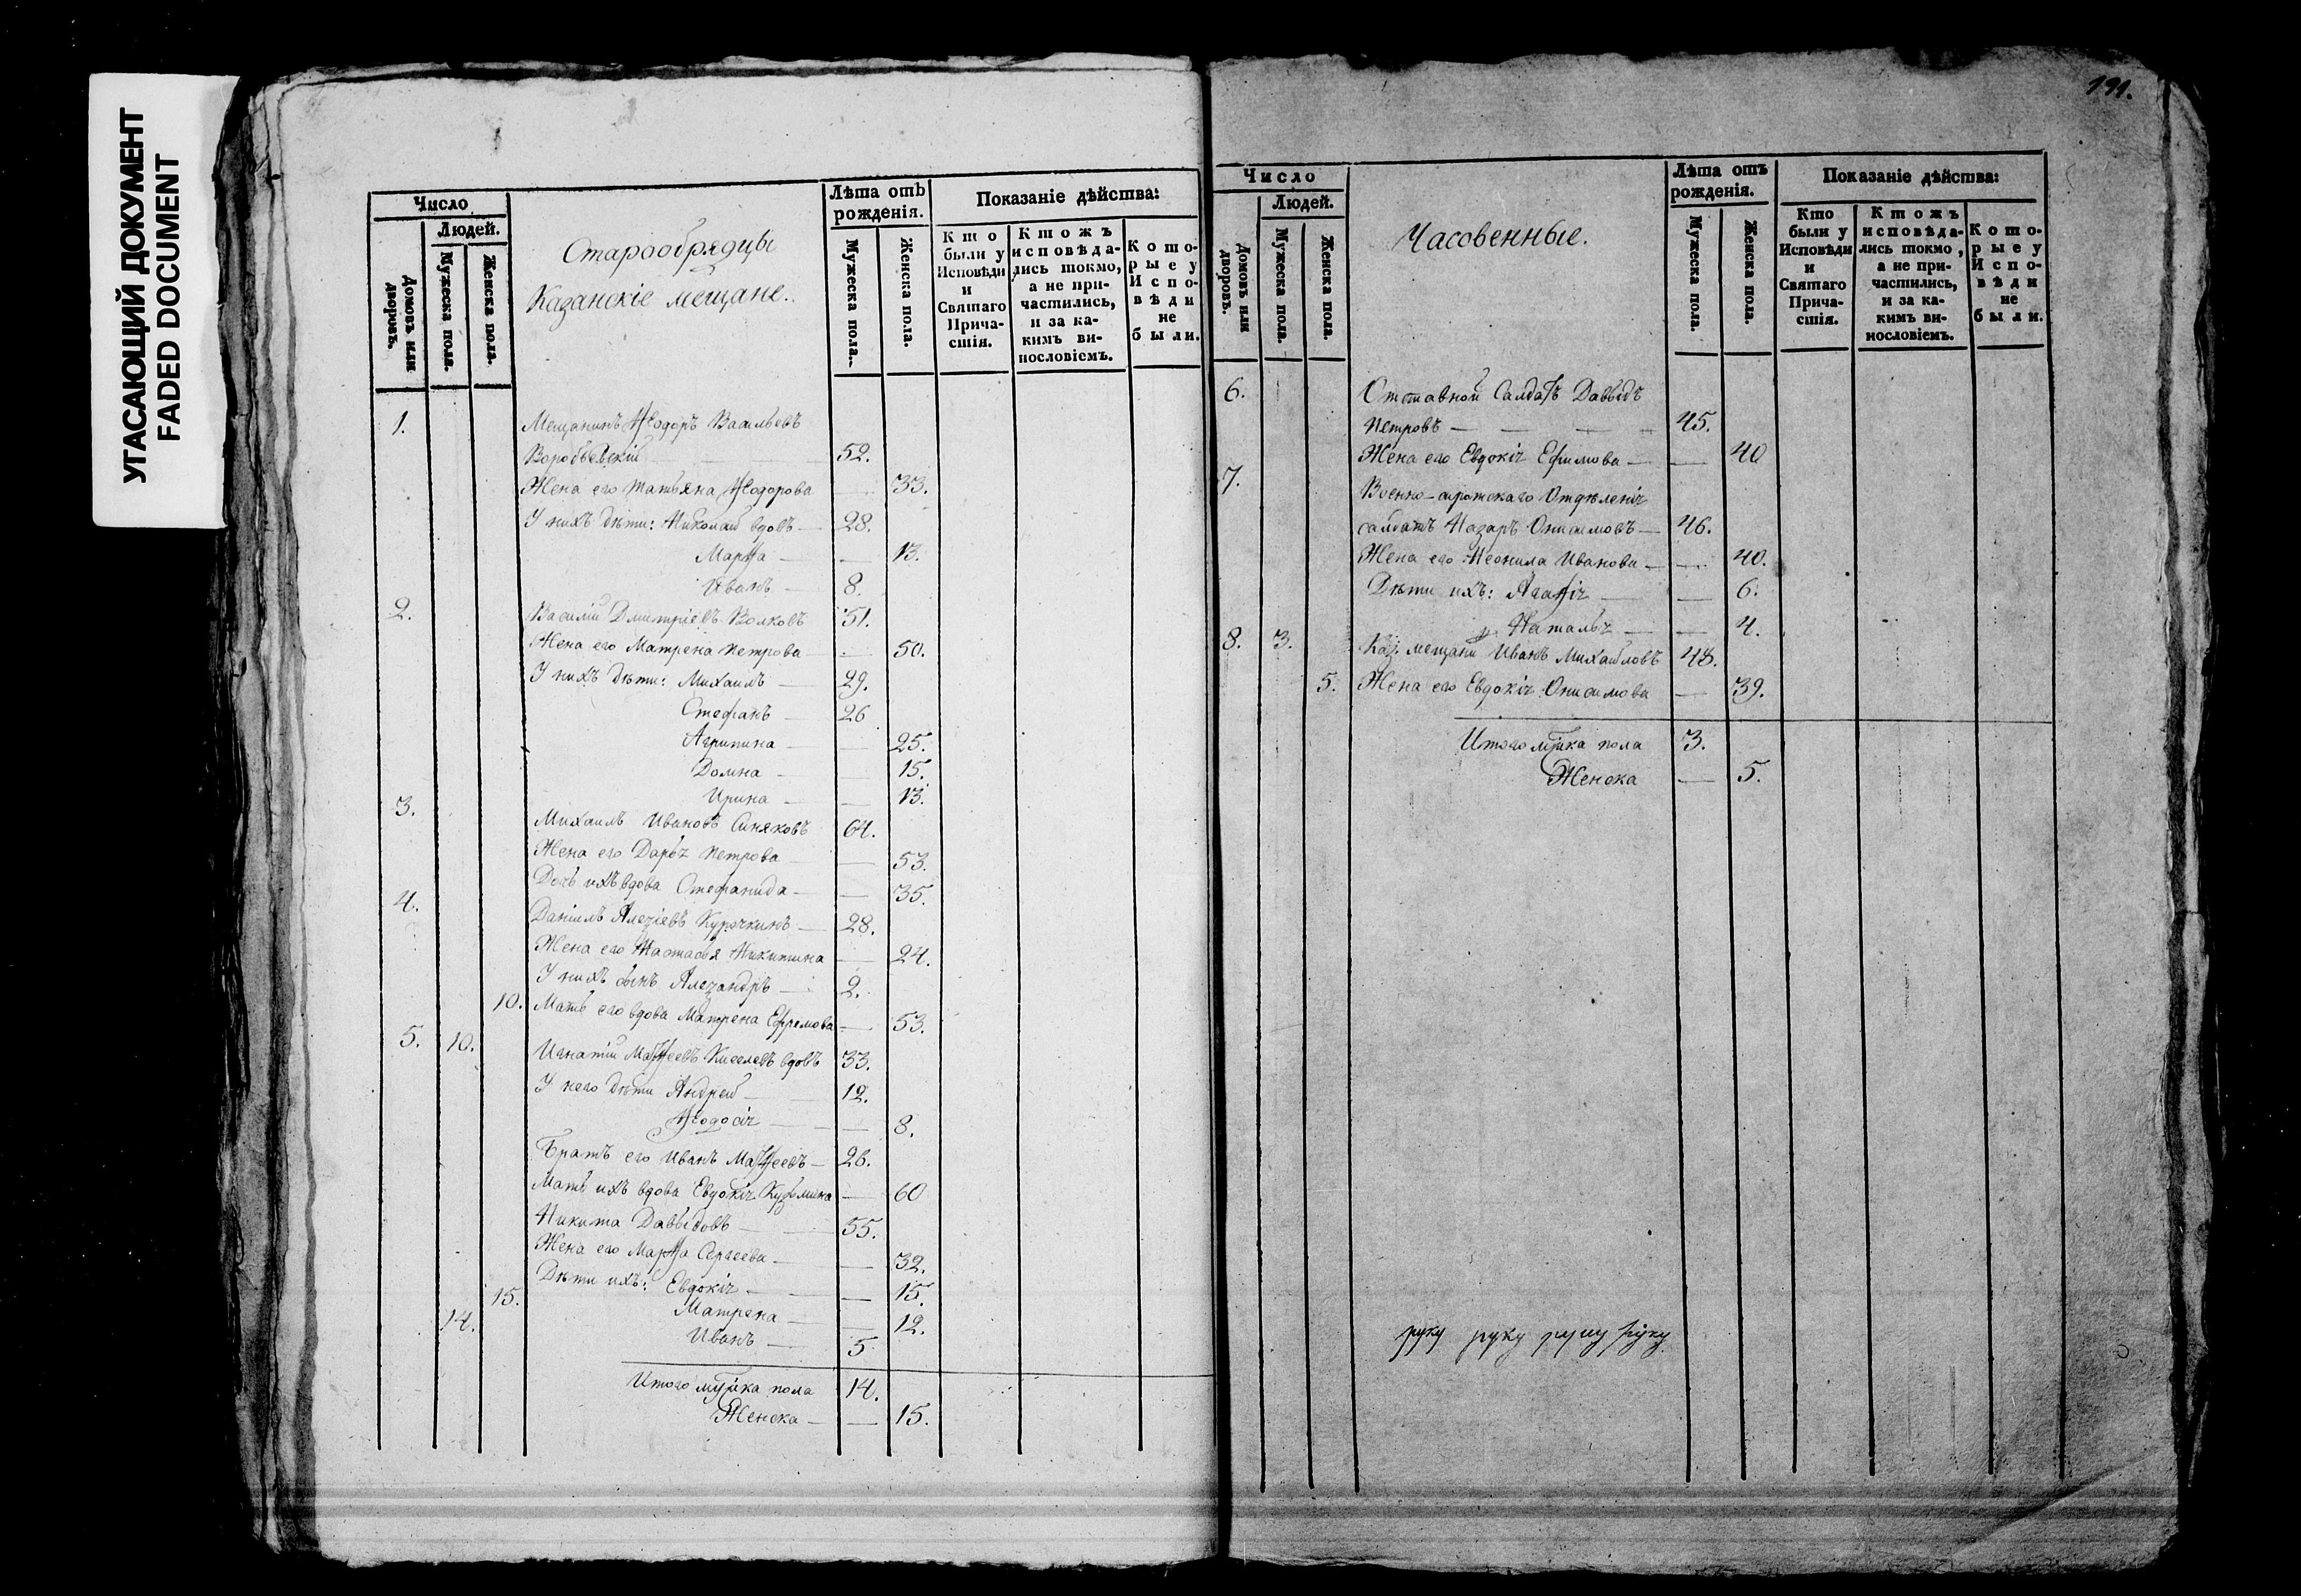 УГАСАЮЩИЙ ДОКУМЕНТ
FADED DOCUMENT
Число
Людей.
Домовъ или дворовъ.
Мужеска пола.
Женска пола.
Старообрядцы
Казанскіе мещане.
Лѣта отъ рожденія.
Мужеска пола.
Женска пола.
Показаніе дѣйства:
Кто были у Исповѣди и Святаго Причастія.
Ктожъ исповѣдались токмо, а не причастились, и за какимъ винословіемъ.
Которые у Исповѣди не были.
1. Мещанинъ Ѳеодоръ Васильевъ
Воробьевскій 52.
Жена его Татьяна Ѳеодорова — 33.
У нихъ дѣти: Николай вдовъ — 28.
Марѳа — — 13.
Иванъ — 8.
2. Василій Дмитріевъ Волковъ 51.
Жена его Матрена Петрова — 50.
У нихъ дѣти: Михаилъ — 29.
Стефанъ — 26
Агрипина — — 25.
Домна — 15.
Ирина — — 13.
3. Михаилъ Ивановъ Синяковъ 64.
Жена его Дарья Петрова — — 53.
Дочь ихъ вдова Стефанида — — 35.
4. Даніилъ Алеѯіевъ Курочкинъ — 28.
Жена его Настасья Никитина — 24.
У нихъ сынъ Алеѯандръ — 2.
10. Мать его вдова Матрена Ефремова — 53.
5. 10. Игнатій Матѳеевъ Киселевъ вдовъ 33.
У него дѣти Андрей — 12.
Ѳеодосія — — 8.
Братъ его Иванъ Матѳеевъ — 26.
Мать ихъ вдова Евдокія Кузьмина — 60
Никита Давыдовъ — 55.
Жена его Марѳа Сергеева — — 32.
Дѣти ихъ: Евдокія — — 15.
15. Матрена — — 12.
14. Иванъ — 5.
Итого мужска пола 14.
Женска — — 15.
191.
Число
Людей.
Домовъ или дворовъ.
Мужеска пола.
Женска пола.
Часовенные.
Лѣта отъ рожденія.
Мужеска пола.
Женска пола.
Показаніе дѣйства:
Кто были у Исповѣди и Святаго Причастія.
Ктожъ исповѣдались токмо, а не причастились, и за какимъ винословіемъ.
Которые у Исповѣди не были.
6. Отставной Салдатъ Давыдъ
Петровъ — — — 45.
Жена его Евдокія Ефимова — — 40
7. Военно-сиротскаго Отдѣленія
салдатъ Назаръ Онисимовъ — 46.
Жена его Неонила Иванова — — 40.
Дѣти ихъ: Агафія — — 6.
Наталья — — 4.
8. 3. Каз. мещани Иванъ Михайловъ 48.
5. Жена его Евдокія Онисимова — 39.
Итого мужска пола 3.
Женска — 5.
руку руку руку руку